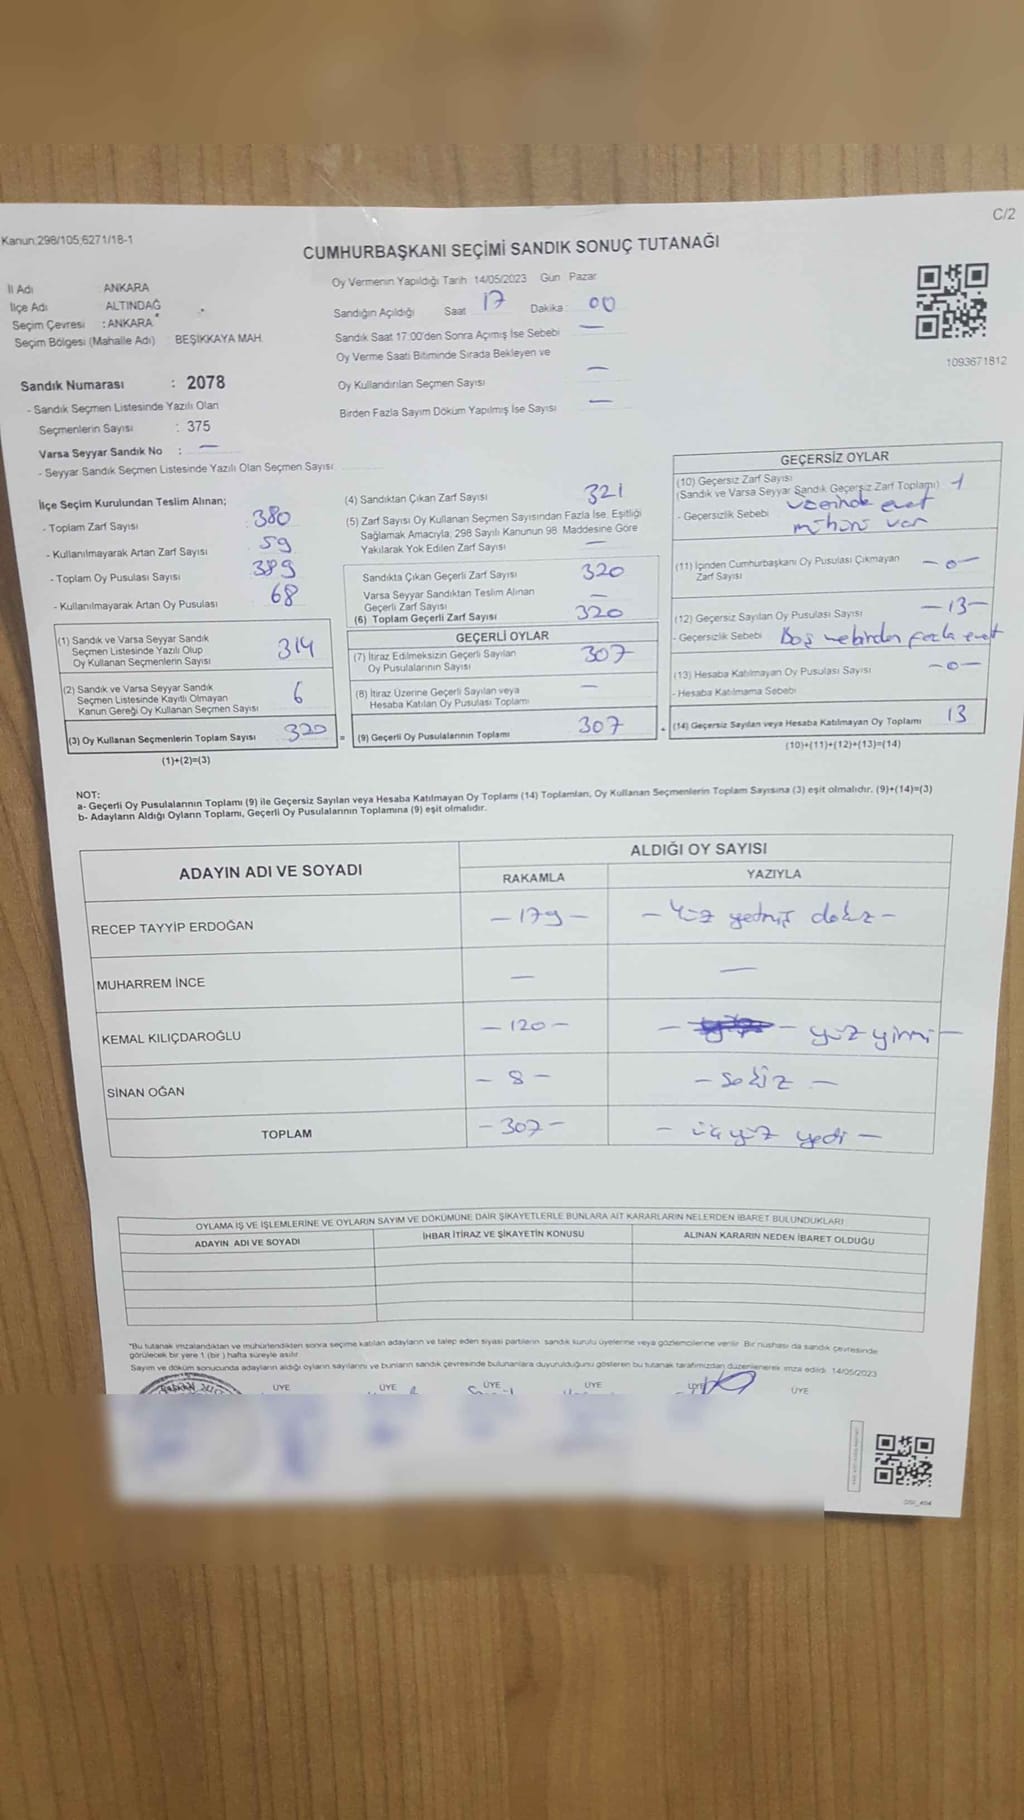 C/2
Kanun;298/105;6271/18-1
CUMHURBAŞKANI SEÇİMİ SANDIK SONUÇ TUTANAĞI
İl Adı ANKARA
İlçe Adı ALTINDAĞ
Seçim Çevresi :ANKARA
Seçim Bölgesi (Mahalle Adı) : BEŞİKKAYA MAH.
Oy Vermenin Yapıldığı Tarih 14/05/2023 Gün Pazar
Sandığın Açıldığı Saat 17 Dakika : 00
Sandık Saat 17:00'den Sonra Açımış İse Sebebi —
Oy Verme Saati Bitiminde Sırada Bekleyen ve
Oy Kullandırılan Seçmen Sayısı —
Birden Fazla Sayım Döküm Yapılmış İse Sayısı —
1093671812
Sandık Numarası : 2078
- Sandık Seçmen Listesinde Yazılı Olan
Seçmenlerin Sayısı : 375
Varsa Seyyar Sandık No : —
- Seyyar Sandık Seçmen Listesinde Yazılı Olan Seçmen Sayısı
İlçe Seçim Kurulundan Teslim Alınan;
- Toplam Zarf Sayısı : 380
- Kullanılmayarak Artan Zarf Sayısı 59
- Toplam Oy Pusulası Sayısı 389
- Kullanılmayarak Artan Oy Pusulası 68
(1) Sandık ve Varsa Seyyar Sandık
Seçmen Listesinde Yazılı Olup
Oy Kullanan Seçmenlerin Sayısı 314
(2) Sandık ve Varsa Seyyar Sandık
Seçmen Listesinde Kayıtlı Olmayan
Kanun Gereği Oy Kullanan Seçmen Sayısı 6
(3) Oy Kullanan Seçmenlerin Toplam Sayısı 320
(1)+(2)=(3)
(4) Sandıktan Çıkan Zarf Sayısı 321
(5) Zarf Sayısı Oy Kullanan Seçmen Sayısından Fazla İse, Eşitliği
Sağlamak Amacıyla, 298 Sayılı Kanunun 98. Maddesine Göre
Yakılarak Yok Edilen Zarf Sayısı —
Sandıkta Çıkan Geçerli Zarf Sayısı 320
Varsa Seyyar Sandıktan Teslim Alınan
Geçerli Zarf Sayısı —
(6) Toplam Geçerli Zarf Sayısı 320
GEÇERLİ OYLAR
(7) İtiraz Edilmeksizin Geçerli Sayılan
Oy Pusulalarının Sayısı 307
(8) İtiraz Üzerine Geçerli Sayılan veya
Hesaba Katılan Oy Pusulası Toplamı —
= (9) Geçerli Oy Pusulalarının Toplamı 307
GEÇERSİZ OYLAR
(10) Geçersiz Zarf Sayısı
(Sandık ve Varsa Seyyar Sandık Geçersiz Zarf Toplamı) 1
- Geçersizlik Sebebi üzerinde evet
mührü var
(11) İçinden Cumhurbaşkanı Oy Pusulası Çıkmayan
Zarf Sayısı —0—
(12) Geçersiz Sayılan Oy Pusulası Sayısı —13—
- Geçersizlik Sebebi Boş ve birden fazla evet
(13) Hesaba Katılmayan Oy Pusulası Sayısı —0—
- Hesaba Katılmama Sebebi
+ (14) Geçersiz Sayılan veya Hesaba Katılmayan Oy Toplamı 13
(10)+(11)+(12)+(13)=(14)
NOT:
a- Geçerli Oy Pusulalarının Toplamı (9) ile Geçersiz Sayılan veya Hesaba Katılmayan Oy Toplamı (14) Toplamları, Oy Kullanan Seçmenlerin Toplam Sayısına (3) eşit olmalıdır. (9)+(14)=(3)
b- Adayların Aldığı Oyların Toplamı, Geçerli Oy Pusulalarının Toplamına (9) eşit olmalıdır.
ADAYIN ADI VE SOYADI
ALDIĞI OY SAYISI
RAKAMLA YAZIYLA
RECEP TAYYİP ERDOĞAN —179— —Yüz yetmiş dokuz—
MUHARREM İNCE — —
KEMAL KILIÇDAROĞLU —120— — — yüz yirmi—
SİNAN OĞAN —8— —Sekiz—
TOPLAM —307— —üçyüz yedi—
OYLAMA İŞ VE İŞLEMLERİNE VE OYLARIN SAYIM VE DÖKÜMÜNE DAİR ŞİKAYETLERLE BUNLARA AİT KARARLARIN NELERDEN İBARET BULUNDUKLARI
ADAYIN ADI VE SOYADI İHBAR İTİRAZ VE ŞİKAYETİN KONUSU ALINAN KARARIN NEDEN İBARET OLDUĞU
"Bu tutanak imzalandıktan ve mühürlendikten sonra seçime katılan adayların ve talep eden siyasi partilerin sandık kurulu üyelerine veya gözlemcilerine verilir. Bir nüshası da sandık çevresinde
görülecek bir yere 1 (bir) hafta süreyle asılır.
Sayım ve döküm sonucunda adayların aldığı oyların sayılarını ve bunların sandık çevresinde bulunanlara duyurulduğunu gösteren bu tutanak tarafımızdan düzenlenerek imza edildi. 14/05/2023
ÜYE ÜYE ÜYE ÜYE ÜYE ÜYE